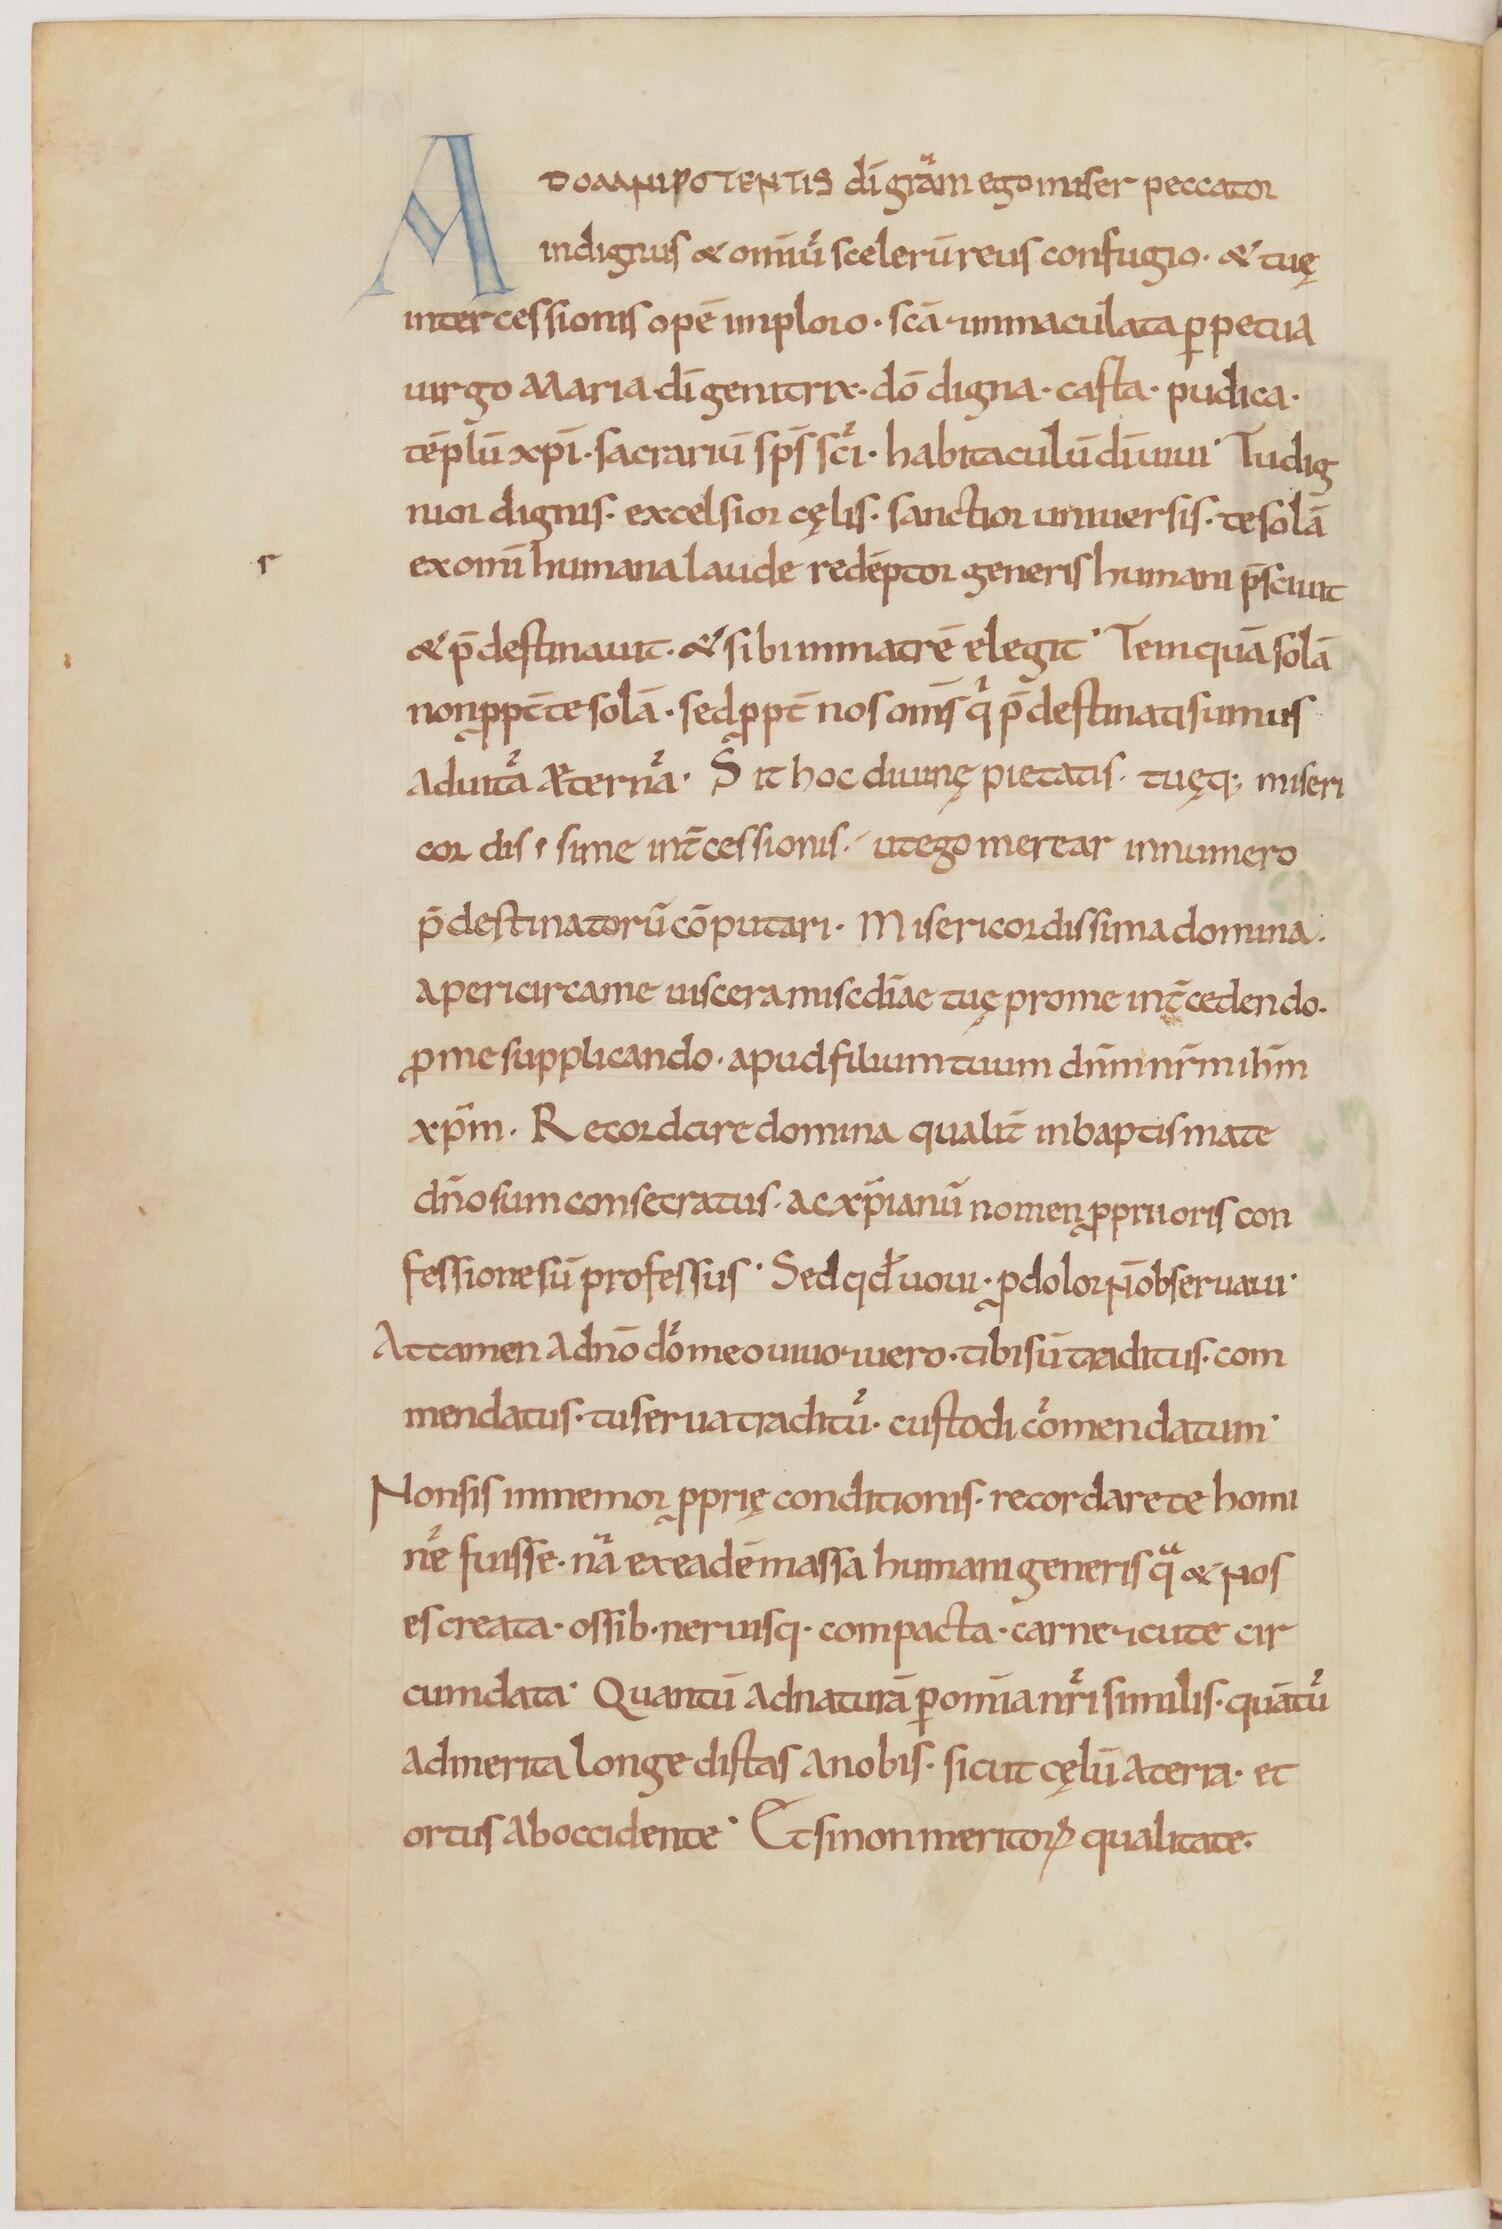 ADOMNIPOTENTIS dī gr̄am ego miser peccator
indignus & omiū scelerū reus confugio· & tuę
intercessionis opē imploro· scā ⁊ immaculata ꝑpetua
uirgo Maria dī genitrix· dō digna· casta· pudica·
tēplū xpī· sacrariū sp̄s scī· habitaculū diuini· Tu dig
nior dignis· excelsior cęlis· sanctior uniuersis· te solā
ex omī humana laude redēptor generis humani p̄sciuit
& p̄destinauit· & sibi in matrē elegit· Tem quā solā
non ꝓpt̄ te solā· sed ꝓpt̄ nos om̄s qi p̄destinati sumus
ad uitā æternā· Sit hoc diuinę pietatis· tuęq; miseri
cordissime int̄cessionis· ut ego merear in numero
p̄destinatorū cōputari· Misericordissima domina·
aperi circa me uiscera miscdīae tuę pro me int̄cedendo·
ꝓ me supplicando· apud filium tuum dn̄m nr̄m ihm̄
xp̄m· Recordare domina qualit̄ in baptismate
dn̄o sum consecratus· ac xp̄ianū nomen ꝓprii oris con
fessione sū professus· Sed qđ uoui· ꝓ dolor n̄ obseruaui·
Attamen a dn̄o dō meo uiuo ⁊ uero· tibi sū traditus· com
mendatus· tu serua traditū· custodi cōmendatum·
Non sis immemor ꝓprię conditionis· recordare te homi
nē fuisse· nā ex eadē massa humani generis qa & nos
es creata· ossib· neruisq· compacta· carne ⁊ cute cir
cumdata· Quantū ad naturā ꝑ omīa nr̄i similis· quātū
ad merita longe distas a nobis· sicut cęlū a terra· et
ortus ab occidente· Et si non meritoꝝ qualitate·